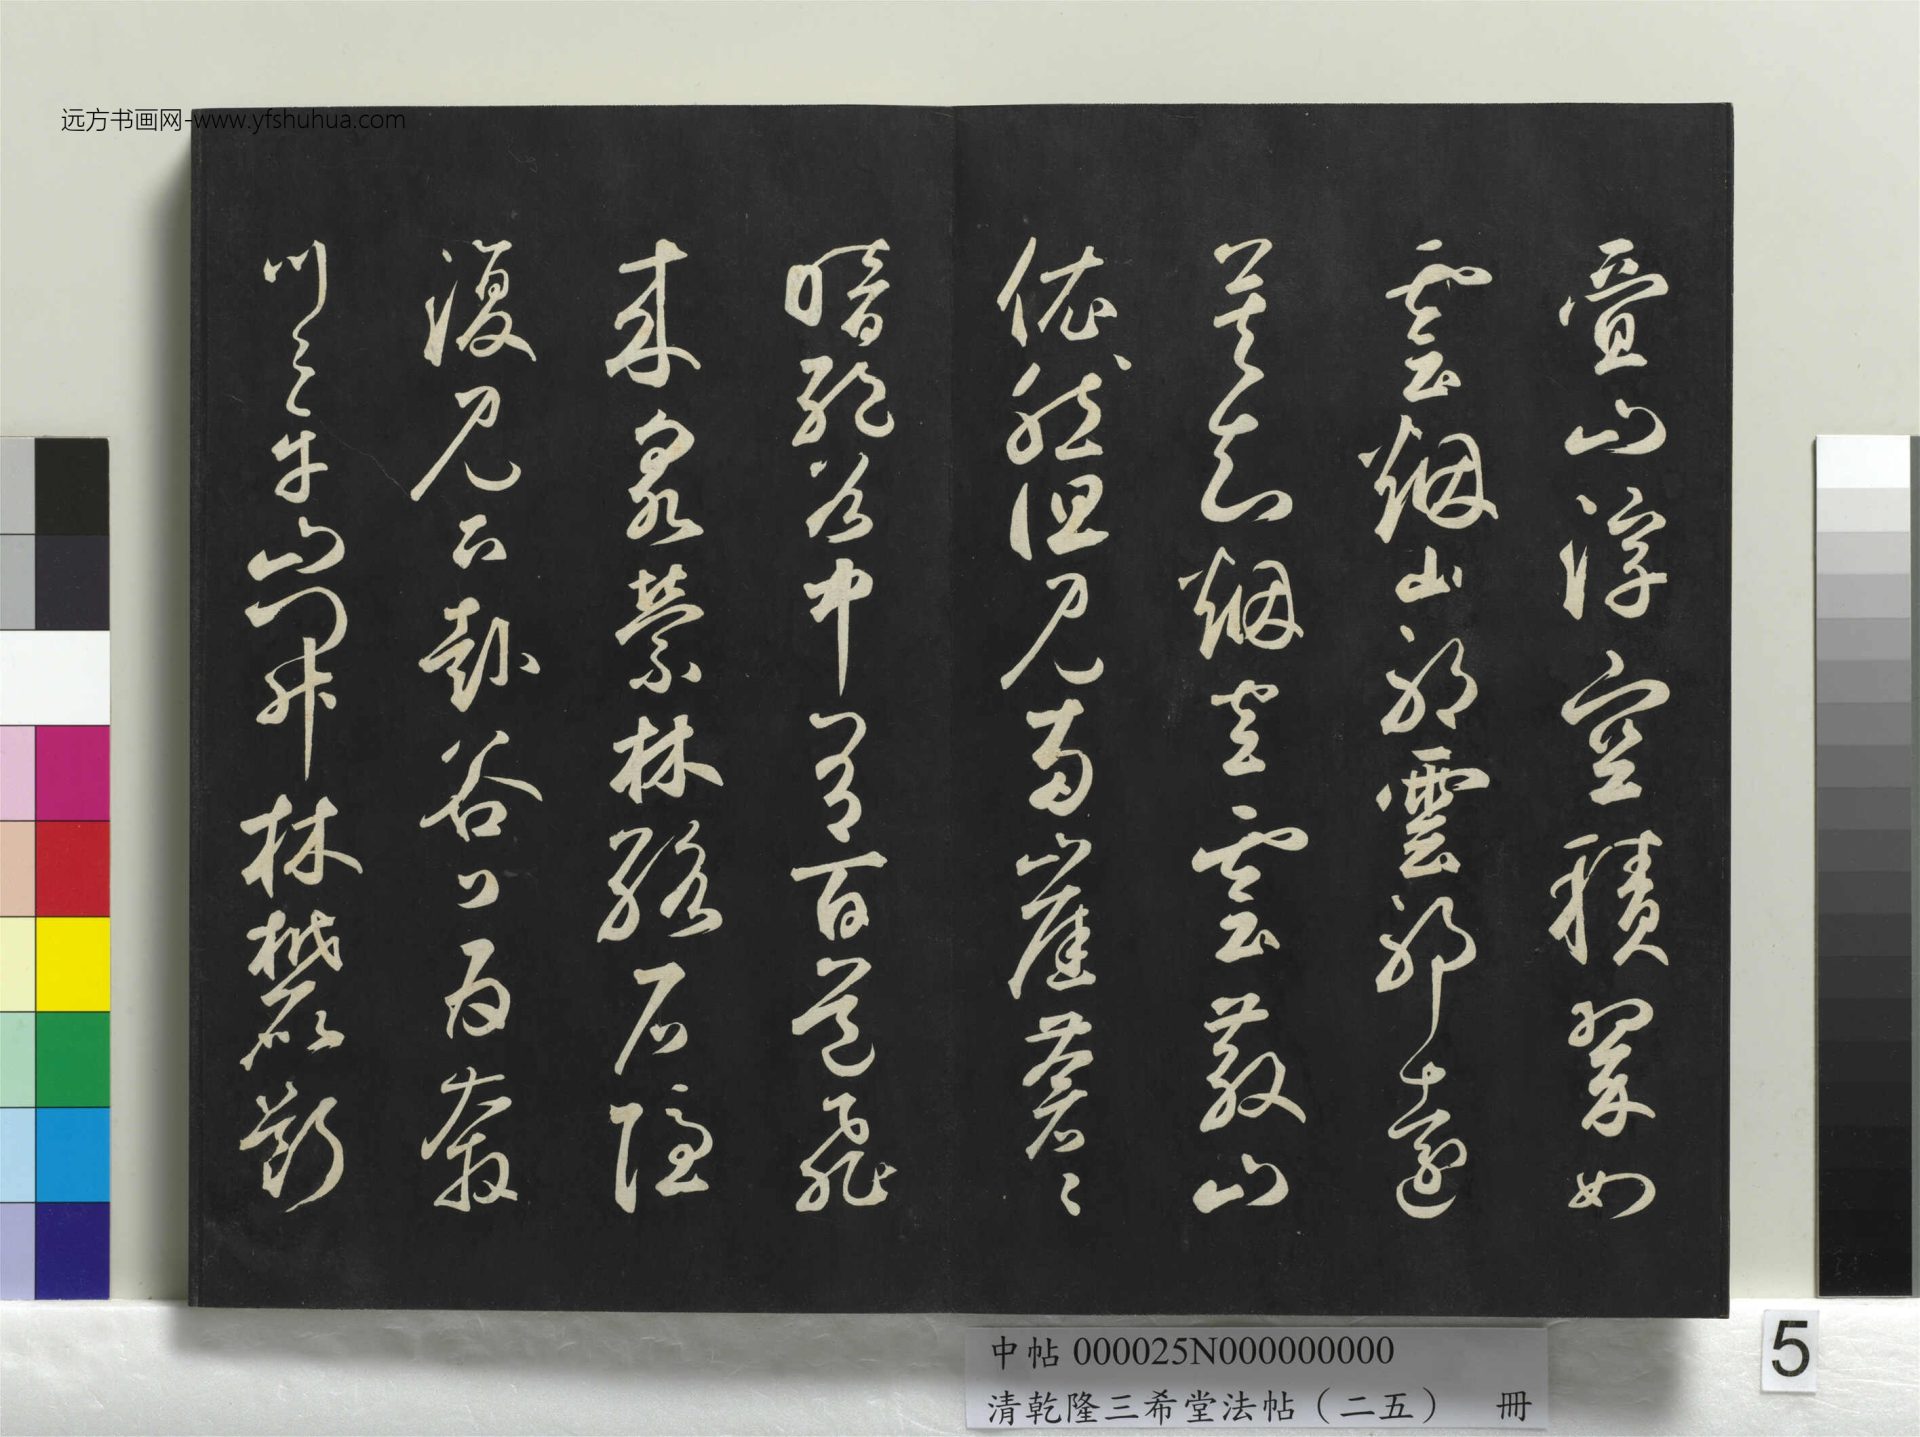 远方书画网-www.yfshuhua.com
疊山浮空積翠如
雲烟山耶雲耶遠
莫知烟空雲散山
依然但見兩崖蒼〻
暗絕谷中有百道飛
來泉縈林絡石隱
復見下赴谷口為奔
川〻平山開林麓斷
中帖 000025N000000000
清乾隆三希堂法帖（二五） 冊
5